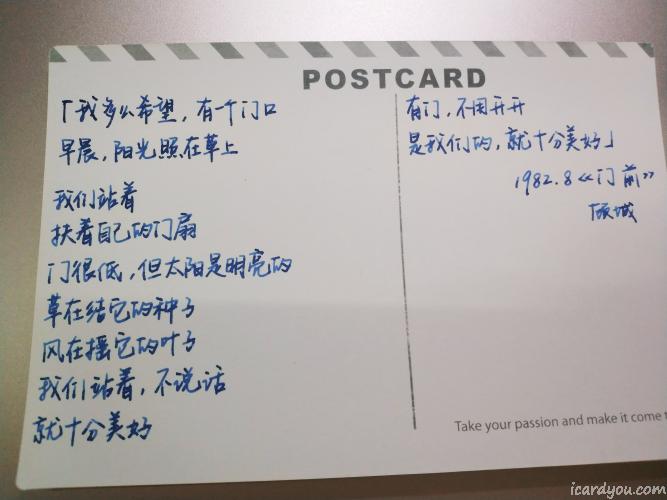 POSTCARD
「我多么希望，有一个门口
早晨，阳光照在草上
我们站着
扶着自己的门扇
门很低，但太阳是明亮的
草在结它的种子
风在摇它的叶子
我们站着，不说话
就十分美好
有门，不用开开
是我们的，就十分美好」
1982.8《门前》
顾城
Take your passion and make it come t
icardyou.com